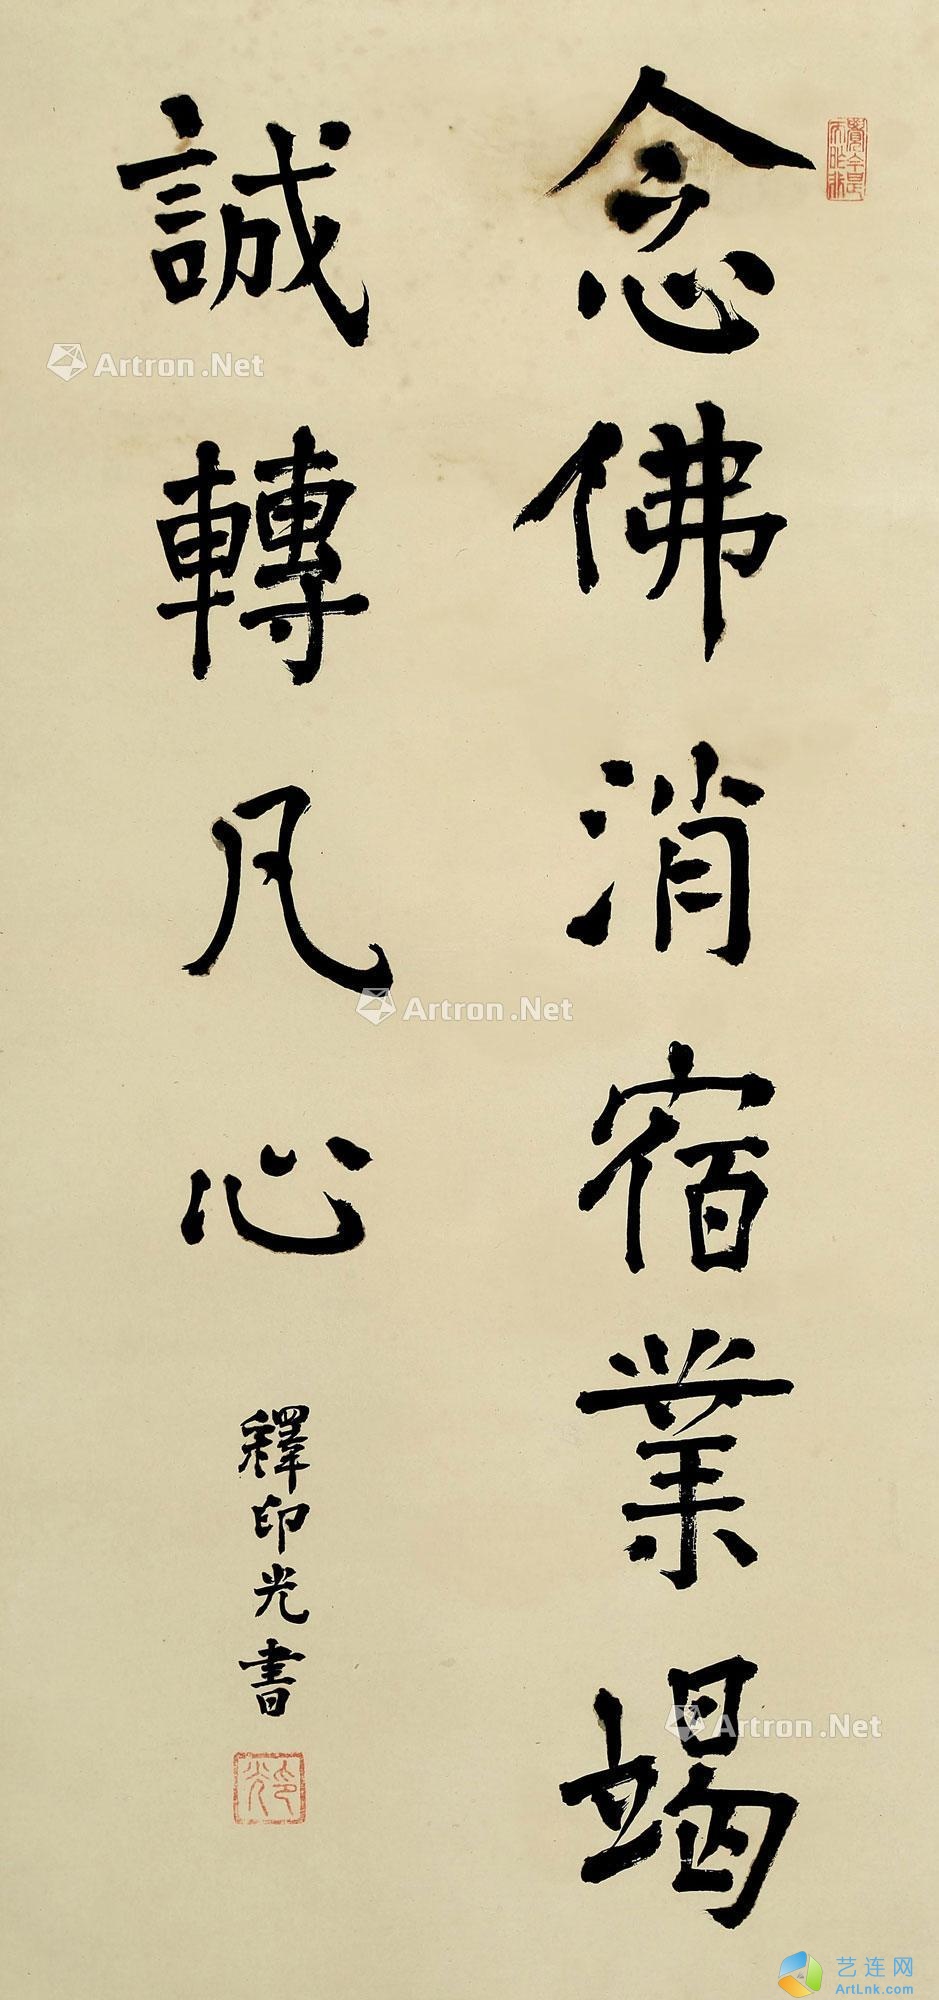 念佛消宿業竭
誠轉凡心
釋印光書
印光
Artron.Net
Artron.Net
Artron.Net
艺连网
ArtLnk.com